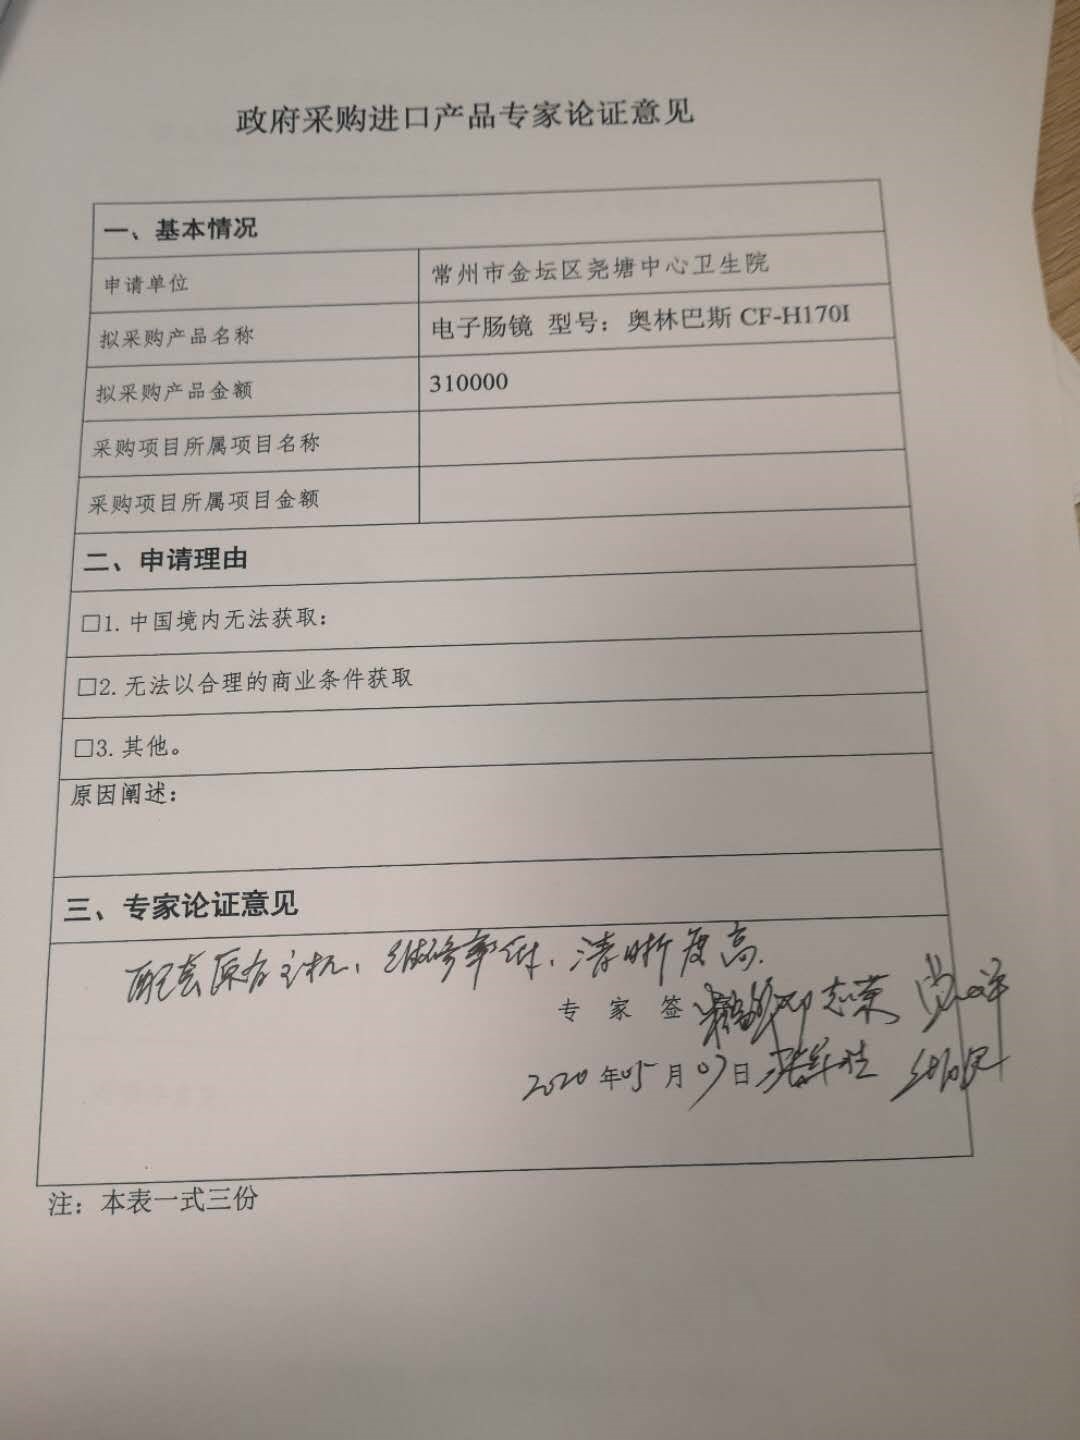 政府采购进口产品专家论证意见
一、基本情况
申请单位 常州市金坛区尧塘中心卫生院
拟采购产品名称 电子肠镜 型号：奥林巴斯 CF-H170I
拟采购产品金额 310000
采购项目所属项目名称
采购项目所属项目金额
二、申请理由
□1. 中国境内无法获取：
□2. 无法以合理的商业条件获取
□3. 其他。
原因阐述：
三、专家论证意见
配套原有主机、维修率低、清晰度高.
专 家 签
2020 年 05 月 07 日
注：本表一式三份